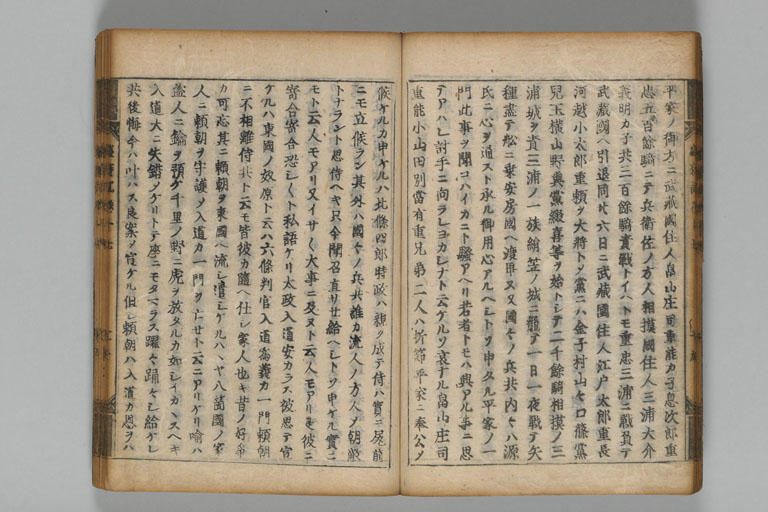 平家ノ御方ニ武蔵國住人畠山庄司重能カ子息次郎重
忠五百餘騎ニテ兵衛佐ノ方人相摸國住人三浦大介
義明カ子共三百餘騎責戰トイヘトモ重忠三浦ニ戰負テ
武蔵國ヘ引退同廿六日ニ武蔵國住人江戸太郎重長
河越小太郎重頼ヲ大将トシ黨ニハ金子村山々口篠黨
兒玉横山野與黨綴喜等ヲ始トシテ二千餘騎相摸ノ三
浦城ヲ責三浦ノ一族絹笠ノ城ニ籠テ一日一夜戰テ矢
種盡テ舩ニ乗安房國ヘ渡畢ヌ又國々ノ兵共内々ハ源
氏ニ心ヲ通スト承ル御用心アルヘシトソ申タル平家ノ一
門此事ヲ聞コハイカニト騒アヘリ若者トモハ興アル事ニ思
テアハレ討手ニ向ラレヨカシナト云ケルソ哀ナル畠山庄司
重能小山田別當有重兄弟二人ハ折節平家ニ奉公ノ
候ケルカ申ケルハ北條四郎時政ハ親ク成テ侍ハ實ニ
ニモ立候ラン其外ハ國々ノ兵共誰カ流人ノ方人シ朝敵
トナラント思侍ヘキ只今聞召直サせ給ヘシトソ申ケル實ニ
モト云人モアリ又イサ々大事ニ及ヌト云人モアリ彼ニ
寄合寄合恐シ々ト私語ケリ太政入道安カラス彼思テ宣
ケルハ東國ノ奴原ト云ハ六條判官入道為義カ一門頼朝
ニ不相離侍共ト云モ皆彼カ隨ヘ仕シ家人也キ昔ノ好争
カ可忘其ニ頼朝ヲ東國ヘ流シ遣シケルハハヤ八箇國ノ家
人ニ頼朝ヲ守護シ入道カ一門ヲ亡せト云ニアリケリ喩ハ
盗人ニ鑰ヲ預ケ千里ノ野ニ虎ヲ放タルカ如シイカヽスヘキ
入道大ニ失錯シケリトテ座ニモタマラス躍々踊々シ給ケレ
共後悔今ハ叶ハス良案シ宣ケルハ但シ頼朝ハ入道カ恩ヲハ